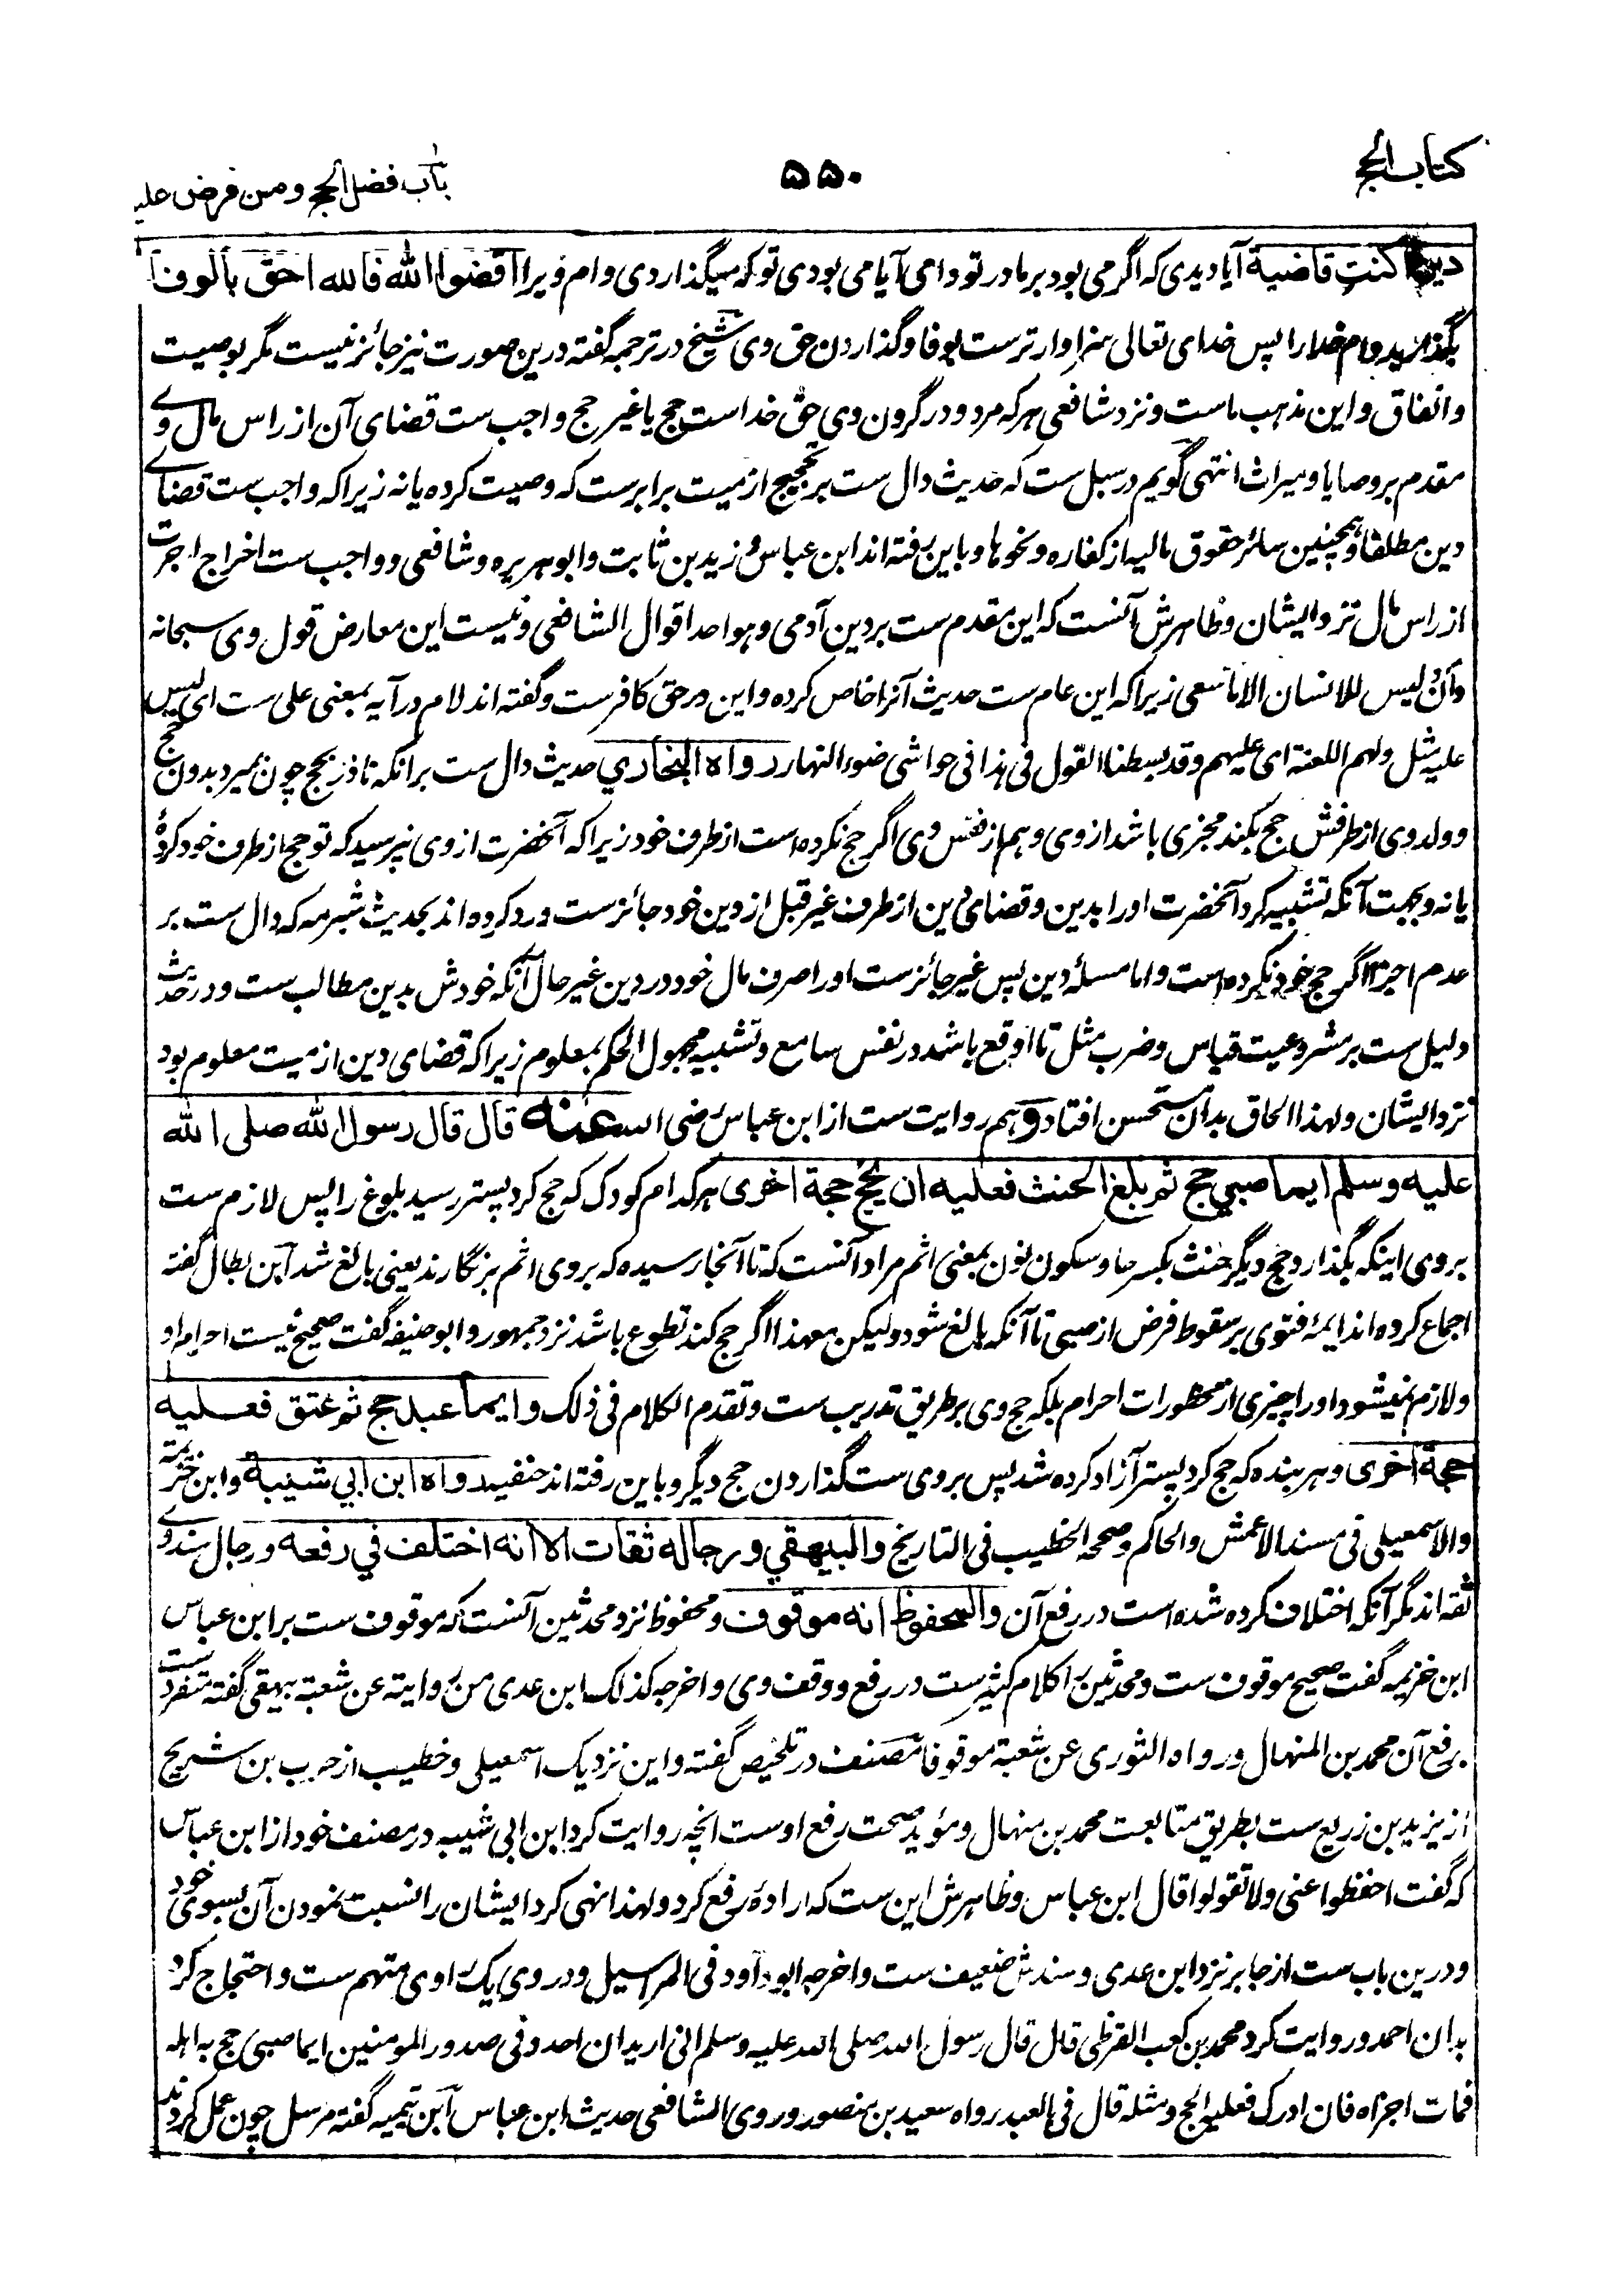 كتاب الحج
۵۵۰
باب فضل الحج ومن فرض علیه
دین اكنت قاضیة آیا دیدی که اگر می بود بر مادر تو وامی آیا می بودی تو که میگذاردی وام ویرا اقضوا الله فالله احق بالوفا
بگذارید وام خدا را پس خدای تعالی سزاوارترست بوفا و گذاردن حق وی شیخ در ترجمه گفته درین صورت نیز جائز نیست مگر بوصیت
و انفاق و این مذهب ماست و نزد شافعی هر که مرد و در گردن وی حق خداست حج یا غیر حج واجب ست قضای آن از راس مال وے
مقدم بر وصایا و میراث انتهی گویم در سبل ست که حدیث دال ست بر تحجیج از میت برابرست که وصیت کرده یا نه زیرا که واجب ست قضاے
دین مطلقا و همچنین سائر حقوق مالیه از کفاره و نحوها و باین رفته اند ابن عباس و زید بن ثابت و ابو هریره و شافعی و واجب ست اخراج اجرت
از راس مال نزد ایشان و ظاهرش آنست که این مقدم ست بر دین آدمی و هو احد اقوال الشافعی و نیست این معارض قول وی سبحانه
وان لیس للانسان الا ما سعی زیرا که این عام ست حدیث آنرا خاص کرده و این در حق کافرست و گفته اند لام در آیه بمعنی علی ست ای لیس
علیه مثل ولهم اللعنة ای علیهم وقد بسطنا القول فی هذا فی حواشی ضوء النهار رواه البخاري حدیث دال ست بر آنکه ناذر بحج چون بمیرد بدون حج
و ولد وی از طرفش حج بکند مجزی باشد از وی و هم از نفس وی اگر حج نکرده است از طرف خود زیرا که آنحضرت از وی نپرسید که تو حج از طرف خود کردهٔ
یا نه و بجهت آنکه تشبیه کرد آنحضرت او را بدین و قضای دین از طرف غیر قبل از دین خود جائزست و رد کرده اند بحدیث شبرمه که دال ست بر
عدم اجزا اگر حج خود نکرده است و اما مسئله دین پس غیر جائزست او را صرف مال خود در دین غیر حال آنکه خودش بدین مطالب ست و در حدیث
دلیل ست بر مشروعیت قیاس و ضرب مثل تا اوقع باشد در نفس سامع و تشبیه مجهول الحکم بمعلوم زیرا که قضای دین از میت معلوم بود
نزد ایشان و لهذا الحاق بدان مستحسن افتاد وهم روایت ست از ابن عباس رضی الله عنه قال قال رسول الله صلى الله
علیه وسلم ایما صبي حج ثم بلغ الحنث فعلیه ان یحج حجة اخرى هر کدام کودک که حج کرد پستر رسید بلوغ را پس لازم ست
بر وی اینکه بگذارد حج دیگر حنث بکسر حا و سکون نون بمعنی اثم مراد آنست که تا آنجا رسیده که بر وی اثم بزنگارند یعنی بالغ شد ابن بطال گفته
اجماع کرده اند ایمهٔ فتوی بر سقوط فرض از صبی تا آنکه بالغ شود و لیکن معهذا اگر حج کند تطوع باشد نزد جمهور و ابو حنیفه گفت صحیح نیست احرام او
و لازم نمیشود او را چیزی از محظورات احرام بلکه حج وی بر طریق تدریب ست و تقدم الکلام فی ذلک وایما عبد حج ثم عتق فعلیه
حجة اخرى و هر بنده که حج کرد پستر آزاد کرده شد پس بر وی ست گذاردن حج دیگر و باین رفته اند حنفیه رواه ابن ابي شیبة و ابن خزیمة
والاسمعیلی فی مسند الاعمش والحاکم وصححه الخطیب فی التاریخ والبیهقي ورجاله ثقات الا انه اختلف في رفعه و رجال سند وے
ثقه اند مگر آنکه اختلاف کرده شده است در رفع آن والمحفوظ انه موقوف و محفوظ نزد محدثین آنست که موقوف ست بر ابن عباس
ابن خزیمه گفت صحیح موقوف ست و محدثین را کلام کثیرست در رفع و وقف وی و اخرجه کذلک ابن عدی من روایته عن شعبة بیهقی گفته متفرد ست
برفع آن محمد بن المنهال و رواه الثوری عن شعبة موقوفا مصنف در تلخیص گفته و این نزدیک اسمعیلی و خطیب از حرب بن شریح
از یزید بن زریع ست بطریق متابعت محمد بن منهال و مؤید صحت رفع اوست انچه روایت کرد ابن ابی شیبه در مصنف خود از ابن عباس
که گفت احفظوا عنی ولا تقولوا قال ابن عباس و ظاهرش این ست که ارادهٔ رفع کرد و لهذا نهی کرد ایشان را نسبت نمودن آن بسوی خود
و درین باب ست از جابر نزد ابن عدی و سندش ضعیف ست و اخرجه ابو داود فی المراسیل و در وی یک راوی متهم ست و احتجاج کرد
بدان احمد و روایت کرد محمد بن کعب القرظی قال قال رسول الله صلی الله علیه وسلم انی ارید ان احدد فی صدور المومنین ایما صبی حج به اهله
فمات اجزاه فان ادرک فعلیه الحج ومثله قال فی العبد رواه سعید بن منصور و روی الشافعی حدیث ابن عباس ابن تیمیه گفته مرسل چون عمل کردند